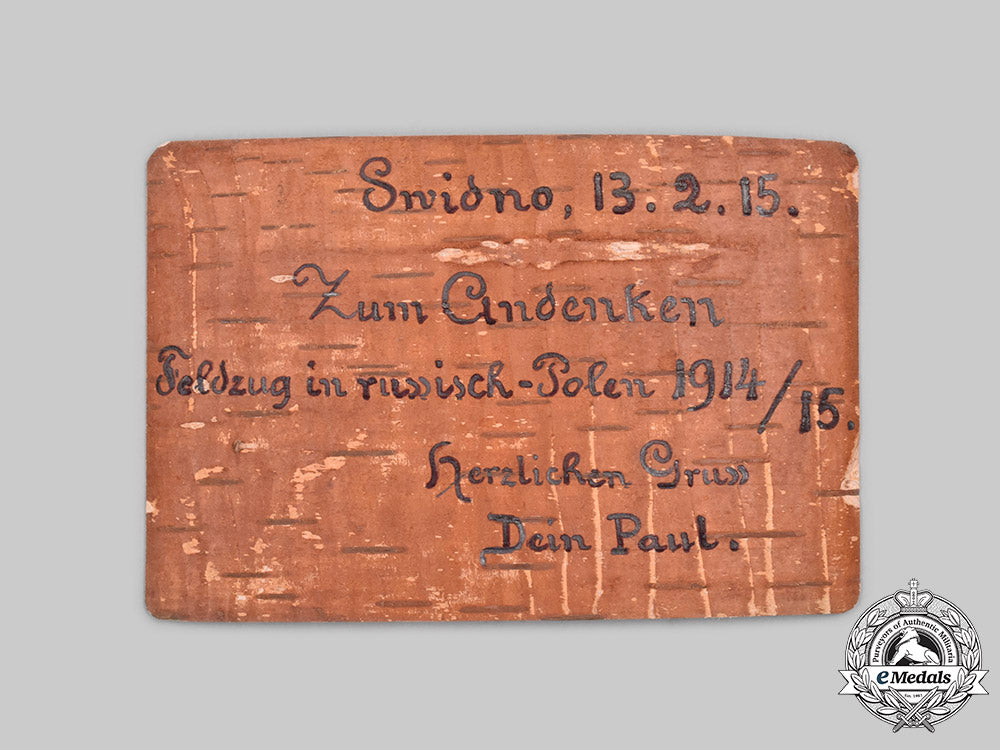 Swidno, 13. 2. 15.
Zum Andenken
Feldzug in russisch-Polen 1914/15.
Herzlichen Gruss
Dein Paul.
Purveyors of Authentic Militaria
eMedals